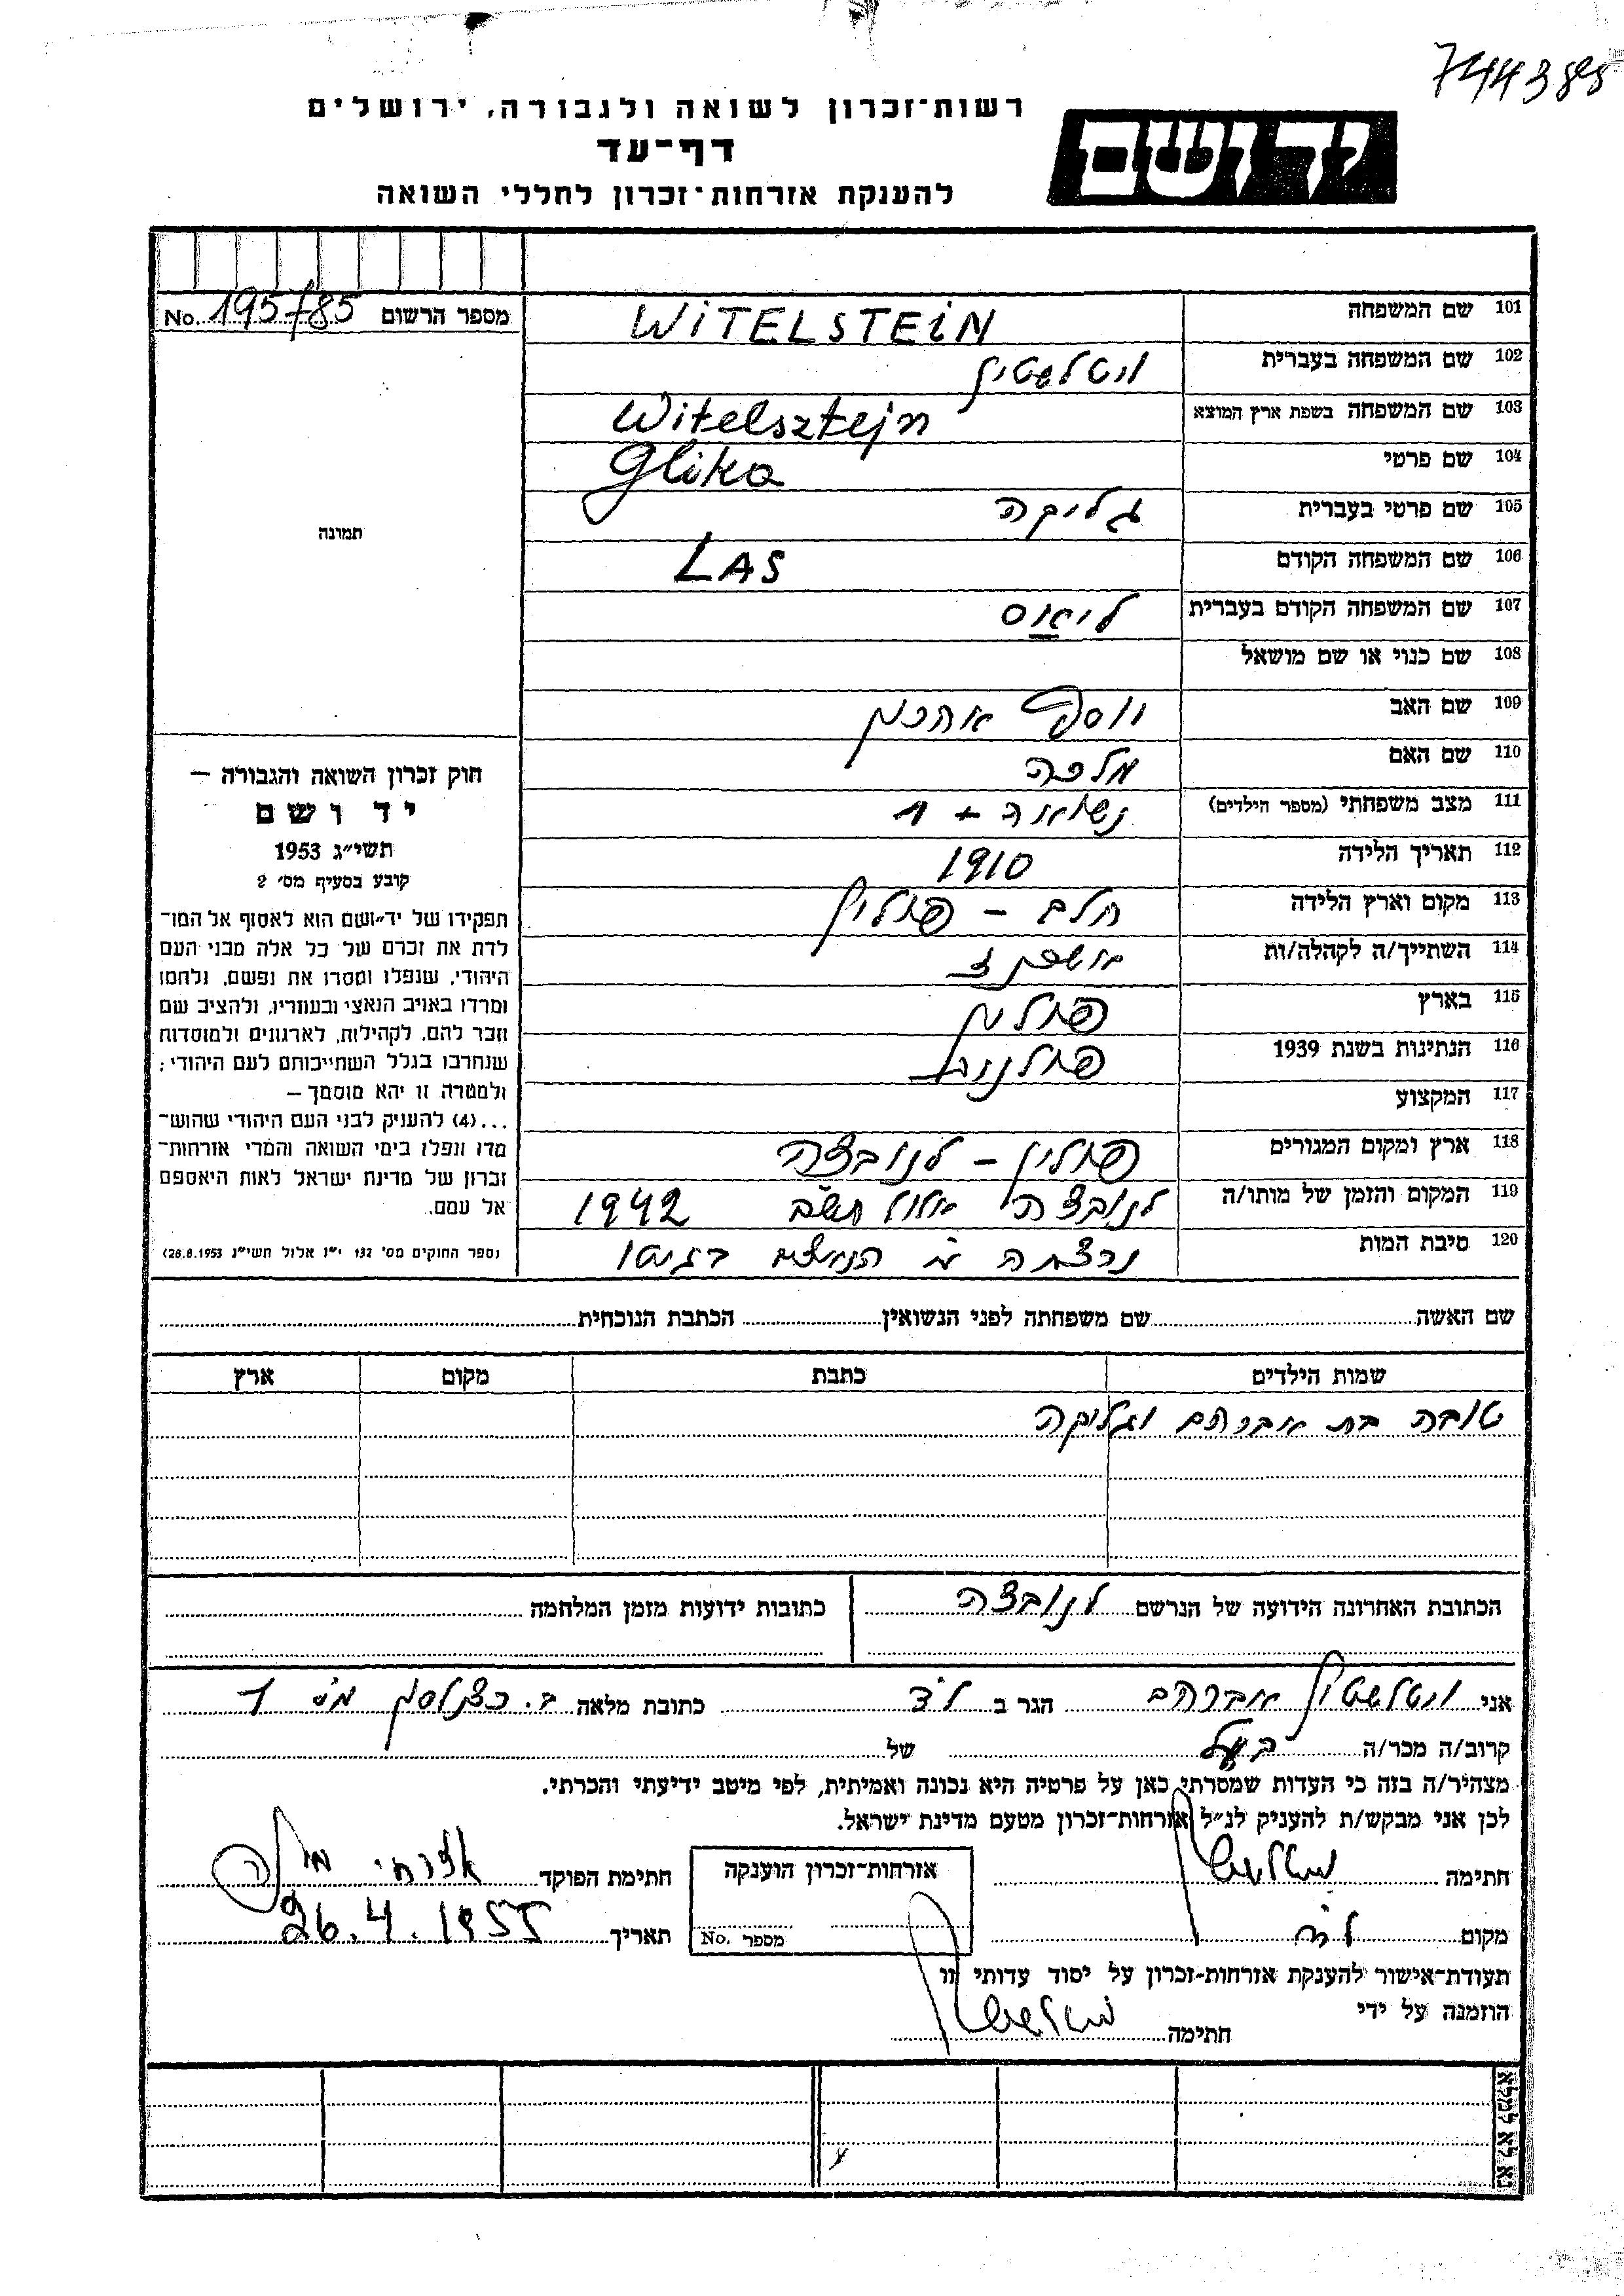 744388
רשות־זכרון לשואה ולגבורה, ירושלים
יד ושם
דף־עד
להענקת אזרחות־זכרון לחללי השואה
מספר הרשום No. 195785
101 שם המשפחה WiTELSTEiN
102 שם המשפחה בעברית ויטלשטיין
103 שם המשפחה בשפת ארץ המוצא Witelsztejn
104 שם פרטי Glika
105 שם פרטי בעברית גליקה
106 שם המשפחה הקודם LAS
107 שם המשפחה הקודם בעברית ליאוס
108 שם כנוי או שם מושאל
109 שם האב יוסף אהרון
110 שם האם מלכה
111 מצב משפחתי (מספר הילדים) נשואה + 1
112 תאריך הלידה 1910
113 מקום וארץ הלידה חלם – פולין
114 השתייך/ה לקהלה/ות אשכנז
115 בארץ פולין
116 הנתינות בשנת 1939 פולנית
117 המקצוע
118 ארץ ומקום המגורים פולין – לנובצה
119 המקום והזמן של מותו/ה לנובצה אלול תש״ב 1942
120 סיבת המות נרצחה ע״י הנאצים בגיטו
תמונה
חוק זכרון השואה והגבורה –
יד ושם
תשי״ג 1953
קובע בסעיף מס׳ 2
תפקידו של יד־ושם הוא לאסוף אל המו־
לדת את זכרם של כל אלה מבני העם
היהודי, שנפלו ומסרו את נפשם, נלחמו
ומרדו באויב הנאצי ובעוזריו, ולהציב שם
וזכר להם, לקהילות, לארגונים ולמוסדות
שנחרבו בגלל השתייכותם לעם היהודי;
ולמטרה זו יהא מוסמך –
...(4) להעניק לבני העם היהודי שהוש־
מדו ונפלו בימי השואה והמרי אזרחות־
זכרון של מדינת ישראל לאות היאספם
אל עמם.
(ספר החוקים מס׳ 132 י״ז אלול תשי״ג 28.8.1953)
שם האשה שם משפחתה לפני הנשואין הכתבת הנוכחית
שמות הילדים כתבת מקום ארץ
טובה בת אברהם וגליקה
הכתובת האחרונה הידועה של הנרשם לנובצה כתובות ידועות מזמן המלחמה
אני ויטלשטיין אברהם הגר ב לוד כתובת מלאה ב. כצנלסון מס׳ 1
קרוב/ה מכר/ה בעל של
מצהיר/ה בזה כי העדות שמסרתי כאן על פרטיה היא נכונה ואמיתית, לפי מיטב ידיעתי והכרתי.
לכן אני מבקש/ת להעניק לנ״ל אזרחות־זכרון מטעם מדינת ישראל.
חתימה ויטלשטיין אזרחות־זכרון הוענקה חתימת הפוקד
מקום לוד מספר No. תאריך 26.4.1955
תעודת־אישור להענקת אזרחות־זכרון על יסוד עדותי זו
הוזמנה על ידי
חתימה ויטלשטיין
נא לא למלא